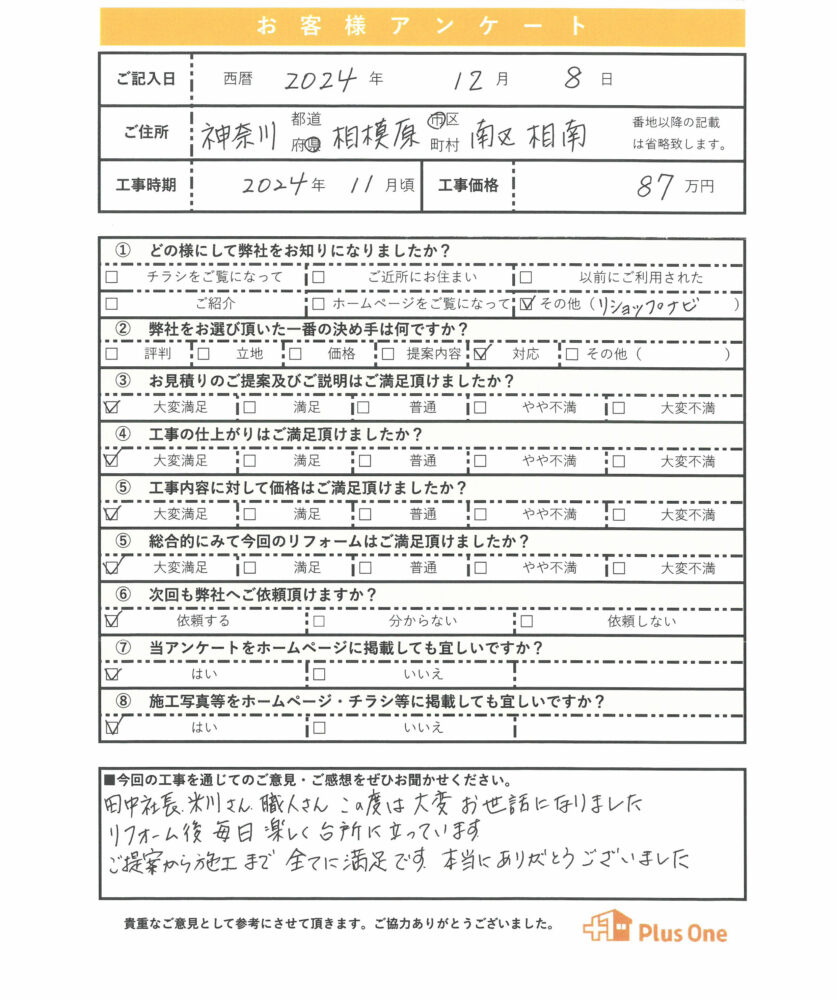 お客様アンケート
ご記入日 西暦 2024 年 12 月 8 日
ご住所 神奈川 都道府県 相模原 市区町村 南区 相南 番地以降の記載は省略致します。
工事時期 2024 年 11 月頃 工事価格 87 万円
① どの様にして弊社をお知りになりましたか？
□ チラシをご覧になって □ ご近所にお住まい □ 以前にご利用された
□ ご紹介 □ ホームページをご覧になって ☑ その他（リショップナビ）
② 弊社をお選び頂いた一番の決め手は何ですか？
□ 評判 □ 立地 □ 価格 □ 提案内容 ☑ 対応 □ その他（ ）
③ お見積りのご提案及びご説明はご満足頂けましたか？
☑ 大変満足 □ 満足 □ 普通 □ やや不満 □ 大変不満
④ 工事の仕上がりはご満足頂けましたか？
☑ 大変満足 □ 満足 □ 普通 □ やや不満 □ 大変不満
⑤ 工事内容に対して価格はご満足頂けましたか？
☑ 大変満足 □ 満足 □ 普通 □ やや不満 □ 大変不満
⑤ 総合的にみて今回のリフォームはご満足頂けましたか？
☑ 大変満足 □ 満足 □ 普通 □ やや不満 □ 大変不満
⑥ 次回も弊社へご依頼頂けますか？
☑ 依頼する □ 分からない □ 依頼しない
⑦ 当アンケートをホームページに掲載しても宜しいですか？
☑ はい □ いいえ
⑧ 施工写真等をホームページ・チラシ等に掲載しても宜しいですか？
☑ はい □ いいえ
■今回の工事を通じてのご意見・ご感想をぜひお聞かせください。
田中社長、米川さん、職人さん この度は 大変 お世話になりました
リフォーム後 毎日 楽しく 台所に立っています
ご提案から施工まで 全てに満足です. 本当にありがとうございました
貴重なご意見として参考にさせて頂きます。ご協力ありがとうございました。
Plus One